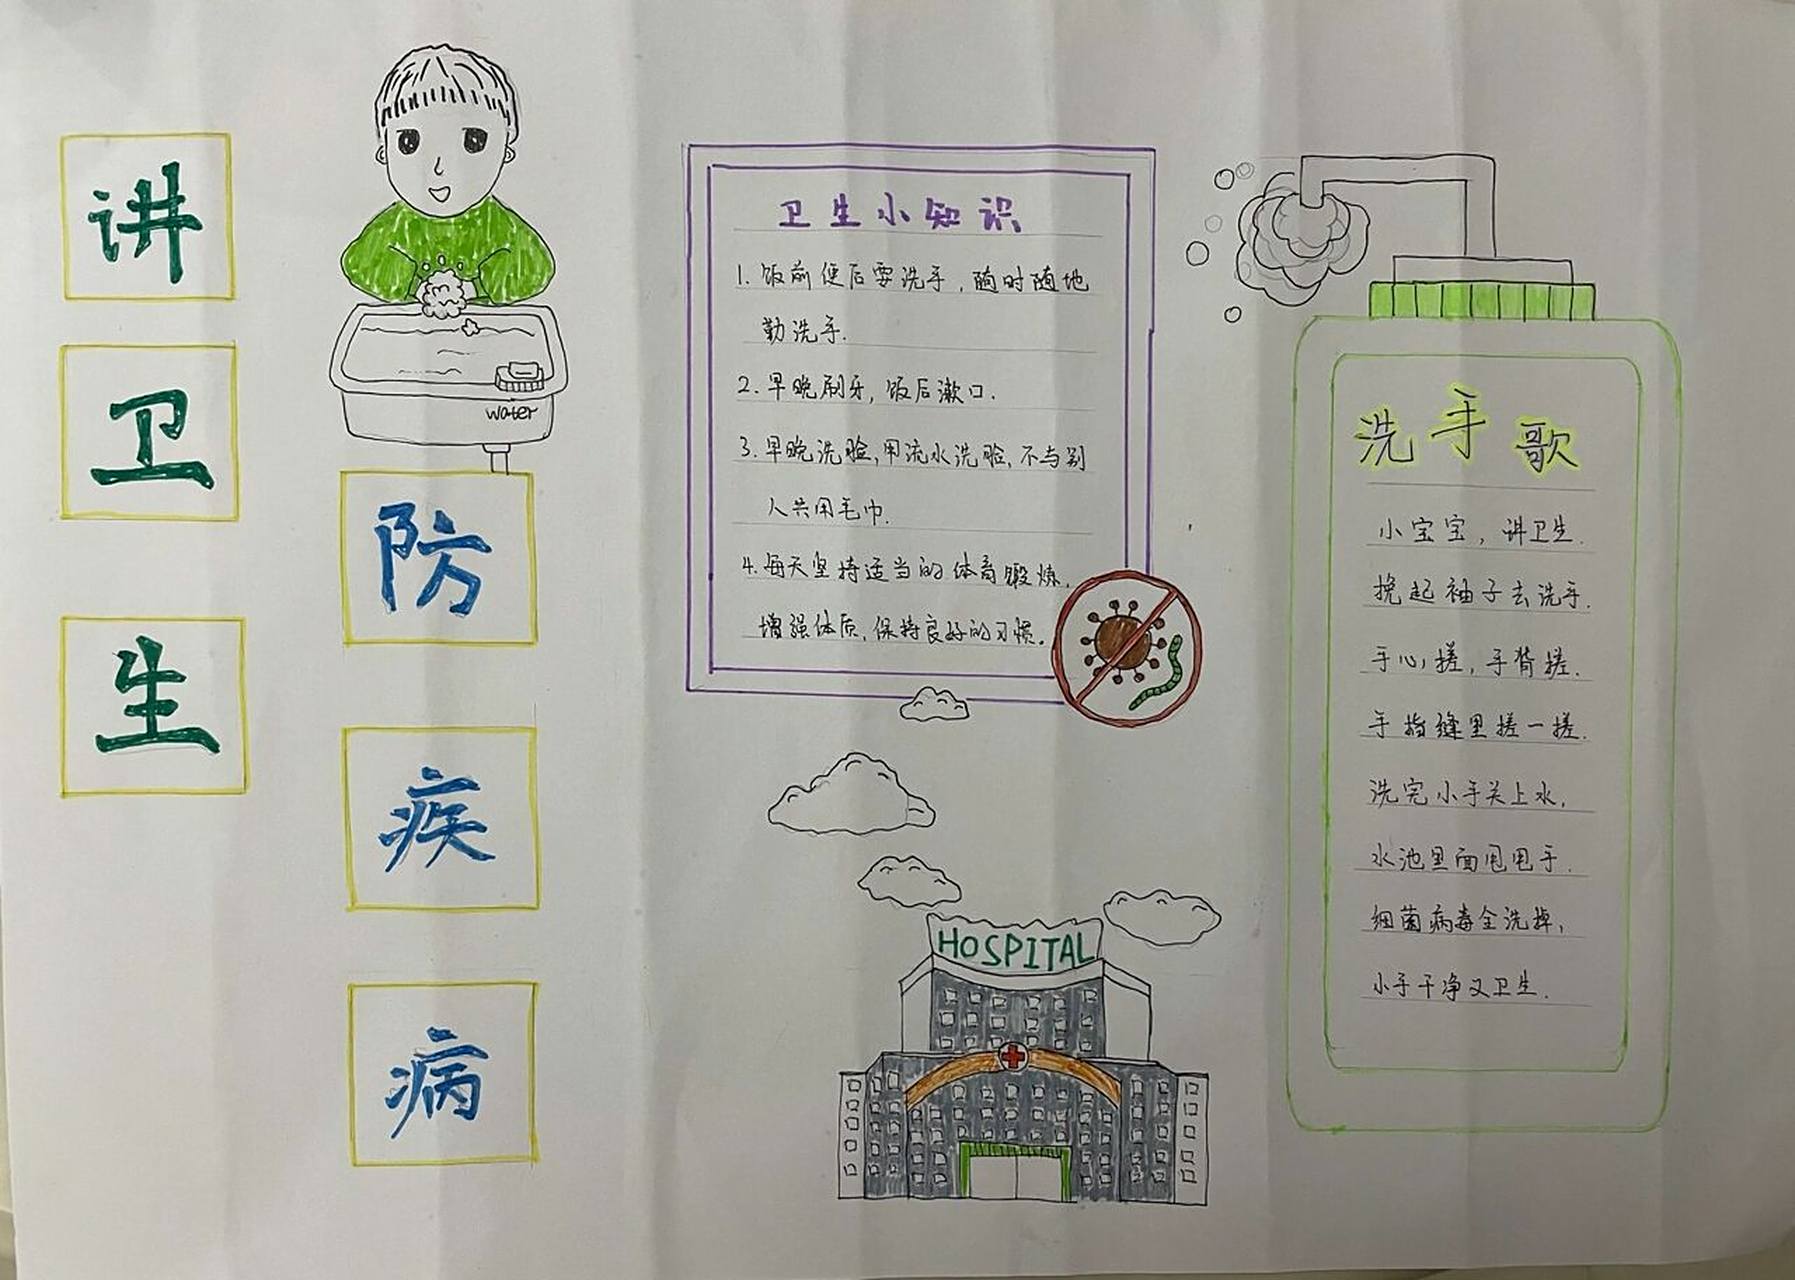 讲
卫
生
防
疾
病
water
卫生小知识
1.饭前便后要洗手，随时随地
勤洗手.
2.早晚刷牙，饭后漱口.
3.早晚洗脸,用流水洗脸,不与别
人共用毛巾.
4.每天坚持适当的体育锻炼,
增强体质,保持良好的习惯。
HOSPITAL
洗手歌
小宝宝，讲卫生.
挽起袖子去洗手.
手心搓,手背搓.
手指缝里搓一搓.
洗完小手关上水,
水池里面甩甩手.
细菌病毒全洗掉,
小手干净又卫生.